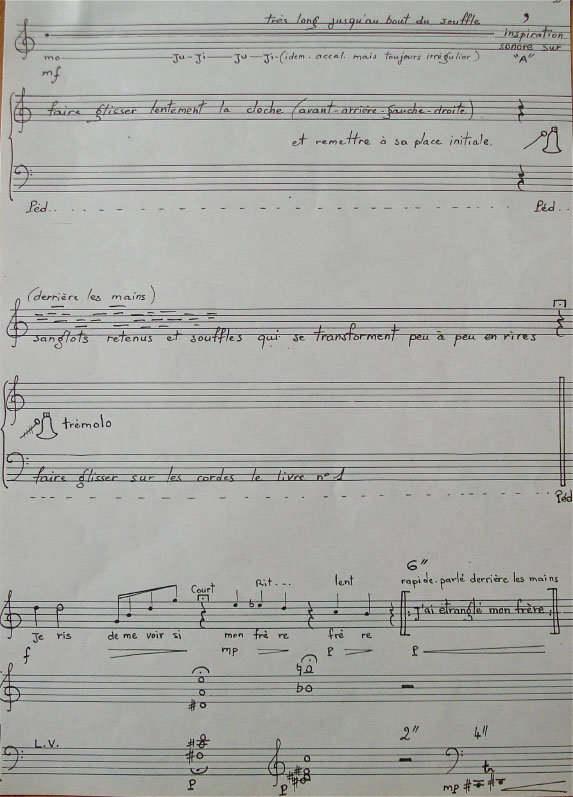 très long jusqu'au bout du souffle
inspiration
sonore sur
"A"
mo Ju - Ji Ju - Ji - (idem. accel. mais toujours irrégulier)
mf
faire glisser lentement la cloche (avant-arrière-gauche-droite)
et remettre à sa place initiale.
Péd... Péd...
(derrière les mains)
sanglots retenus et souffles qui se transforment peu à peu en rires
trémolo
faire glisser sur les cordes le livre n° 1
Péd
6"
Court Rit... lent rapide. parlé derrière les mains
j'ai étranglé mon frère.
Je ris de me voir si mon frè re frè re
f mp p p
L.V. 2" 4"
tr
p p mp